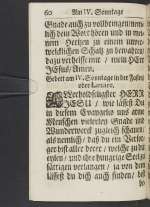 60 Am IV. Sonntage
Gnade auch zu vollbringen
lich dein Wort hören und in
nem Hertzen zu einem
weldlichen Schatz zu bewahren
dazu verhelffe mir / mein HErr
JEsus / Amen.
Gebet am IV. Sonntage in der Fasten
oder Lætare.
HERR
JESU / wie lässest Du
in diesem Evangelio uns arm
Menschen vielerley Gnade und
Wunderwerck zugleich schauen
als nemlich / daß du ein
ger bist aller derer / welche zu dir
eylen / und ihre hungrige Seelen
sättigen verlangen / ja von den
lässest du dich auch finden /